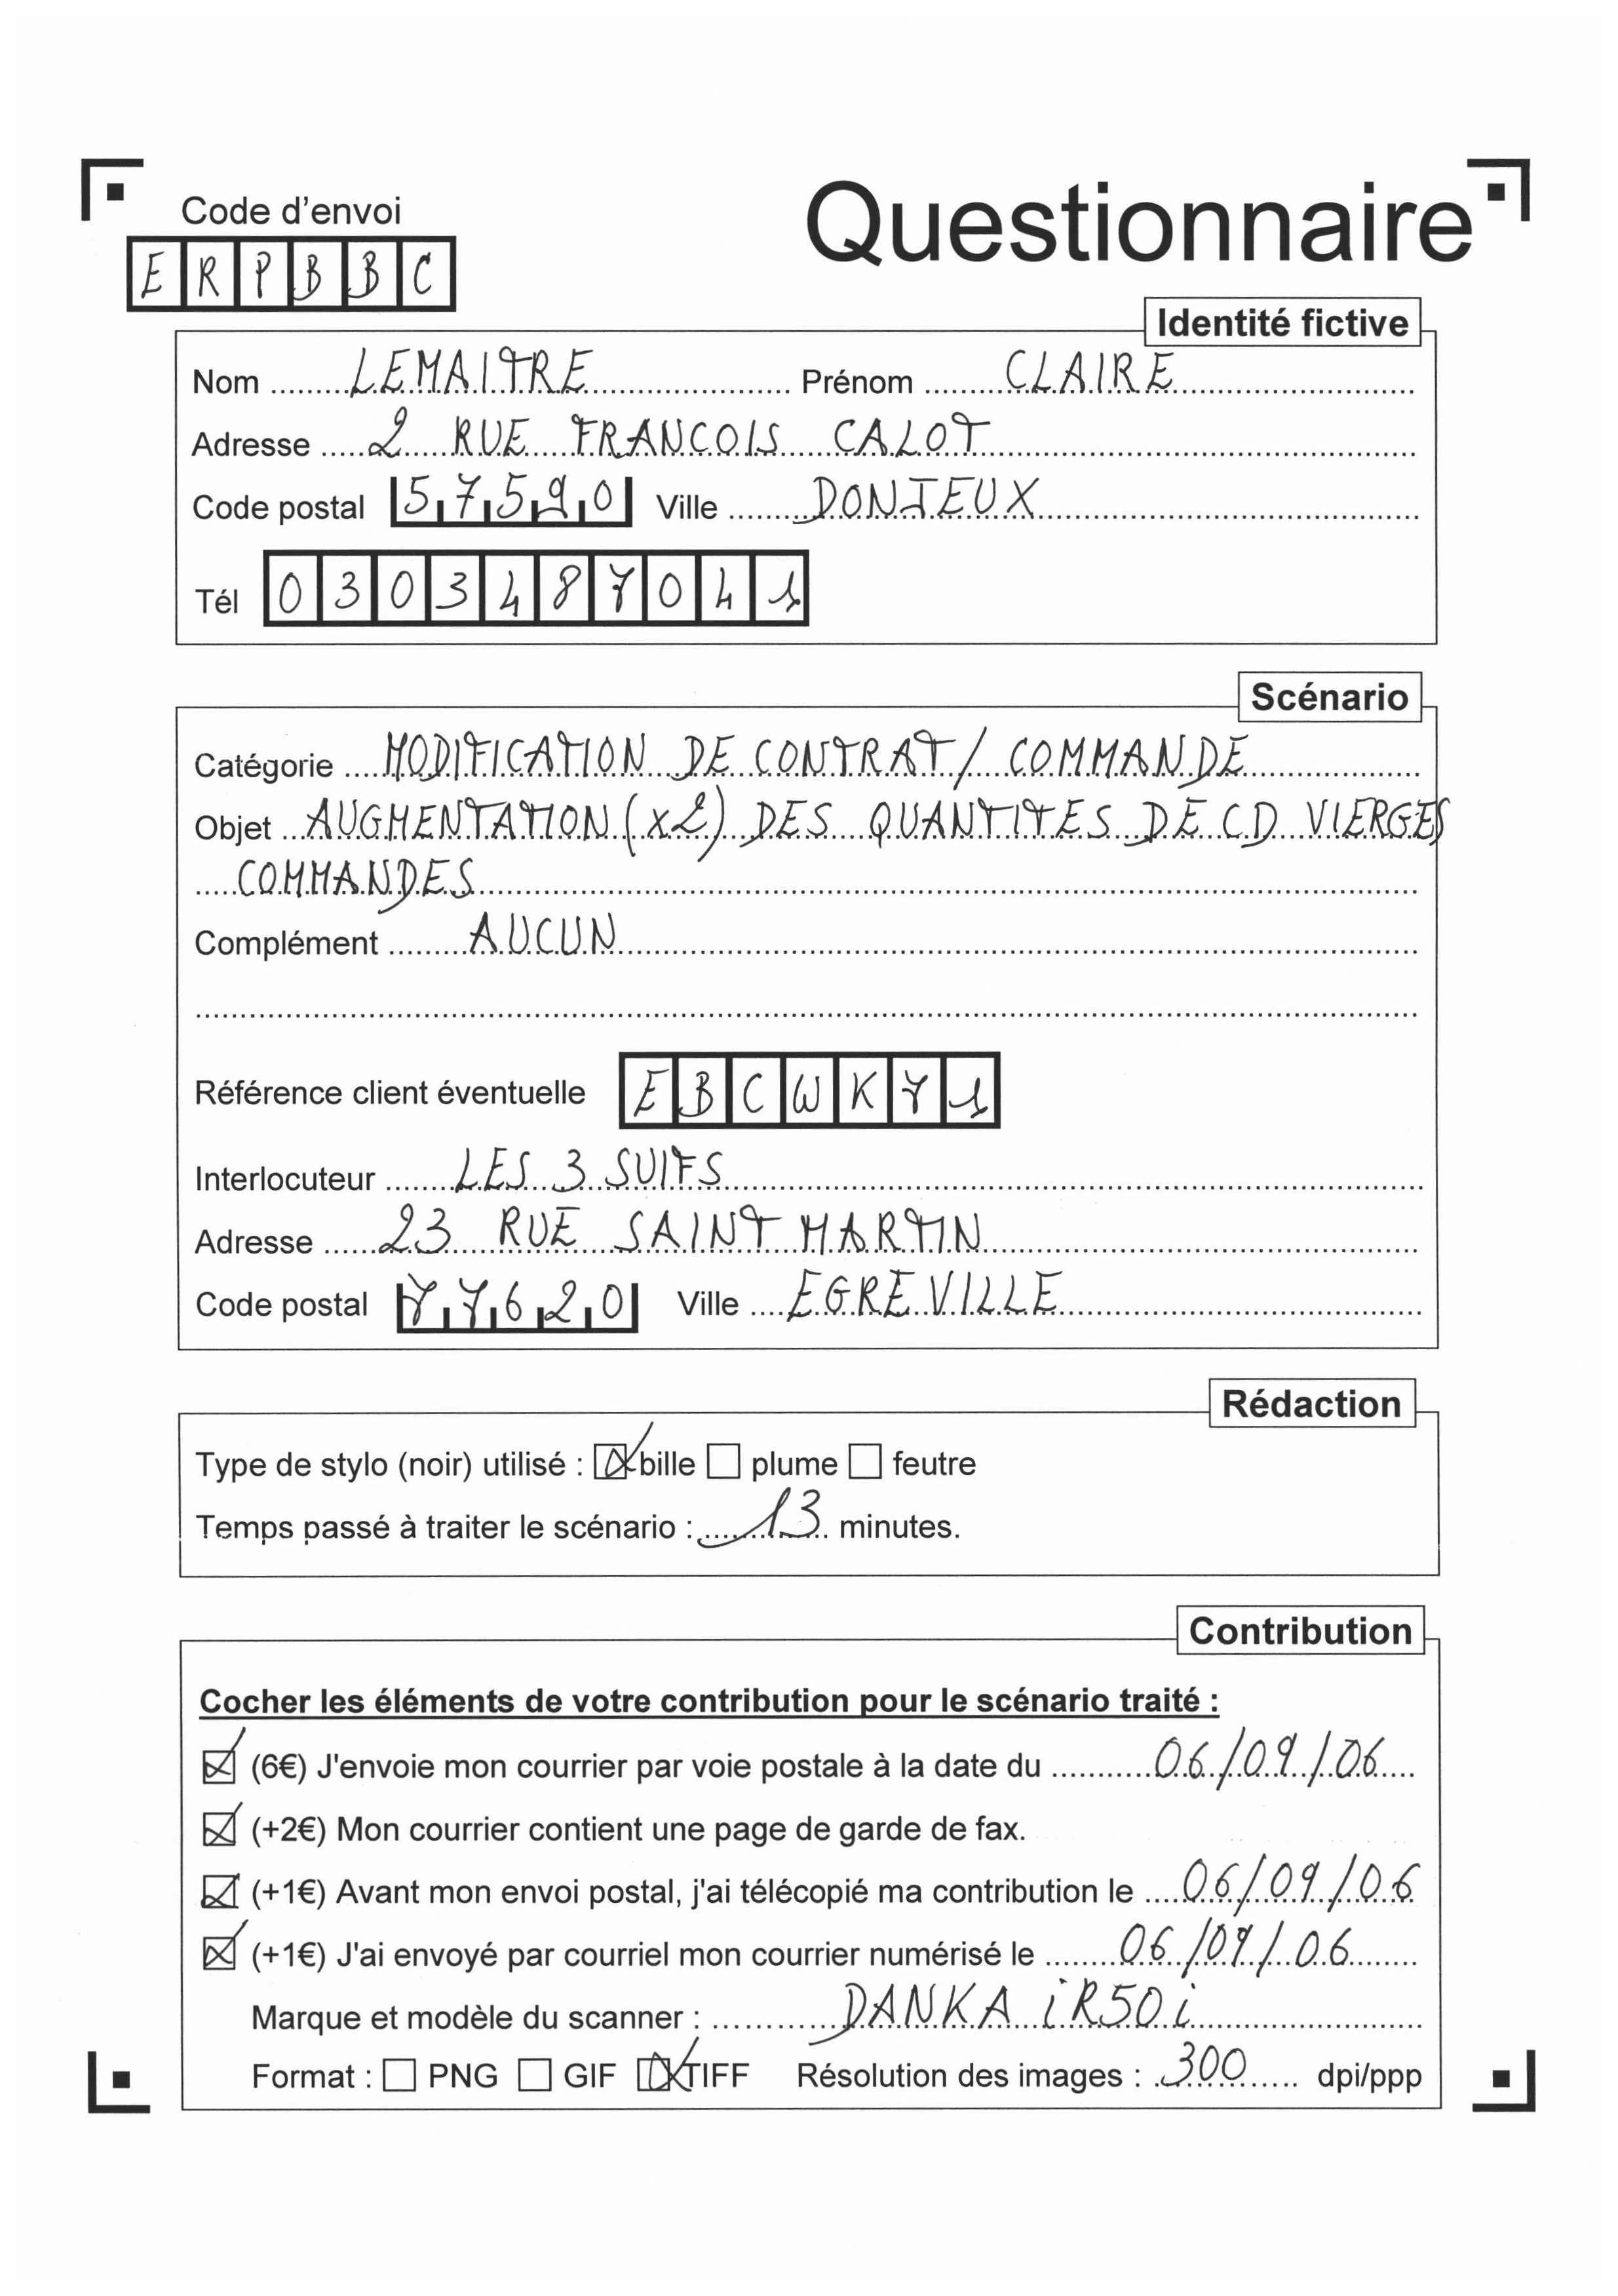 Code d'envoi
Questionnaire
E R P B B C
Identité fictive
Nom LEMAITRE Prénom CLAIRE
Adresse 2 RUE FRANCOIS CALOT
Code postal 57590 Ville DONJEUX
Tél 0303487041
Scénario
Catégorie MODIFICATION DE CONTRAT / COMMANDE
Objet AUGMENTATION (x2) DES QUANTITES DE CD VIERGES
COMMANDES
Complément AUCUN
Référence client éventuelle EBCWKY1
Interlocuteur LES 3 SUIFS
Adresse 23 RUE SAINT MARTIN
Code postal 77620 Ville EGREVILLE
Rédaction
Type de stylo (noir) utilisé : ☒ bille ☐ plume ☐ feutre
Temps passé à traiter le scénario : 13 minutes.
Contribution
Cocher les éléments de votre contribution pour le scénario traité :
☒ (6€) J'envoie mon courrier par voie postale à la date du 06/09/06
☒ (+2€) Mon courrier contient une page de garde de fax.
☒ (+1€) Avant mon envoi postal, j'ai télécopié ma contribution le 06/09/06
☒ (+1€) J'ai envoyé par courriel mon courrier numérisé le 06/09/06
Marque et modèle du scanner : DANKA iR50i
Format : ☐ PNG ☐ GIF ☒ TIFF Résolution des images : 300 dpi/ppp